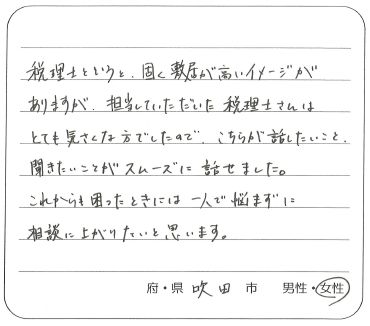 税理士というと、固く敷居が高いイメージが
ありますが、担当していただいた税理士さんは
とても気さくな方でしたので、こちらが話したいこと、
聞きたいことがスムーズに話せました。
これからも困ったときには一人で悩まずに
相談に上がりたいと思います。
府・県 吹田 市 男性・女性